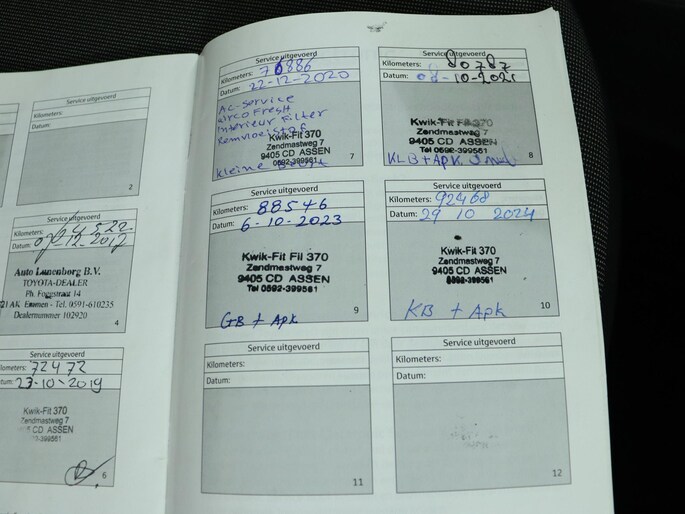 Service uitgevoerd
Kilometers:
Datum:
2
Service uitgevoerd
Kilometers:
Datum: 12-2017
Auto Lunenborg B.V.
TOYOTA-DEALER
Ph. Foggstraat 14
21 AK Emmen - Tel. 0591-610235
Dealernummer 102920
4
Service uitgevoerd
Kilometers: 72472
tum: 23-10-2019
Kwik-Fit 370
Zendmastweg 7
CD ASSEN
-399561
6
Service uitgevoerd
Kilometers: 76886
Datum: 22-12-2020
AC-Service
airco Fresh
Interieur Filter
Remvloeistof
Kwik-Fit 370
Zendmastweg 7
9405 CD ASSEN
0592-399561
Kleine Beurt
7
Service uitgevoerd
Kilometers: 80787
Datum: 08-10-2021
Kwik-Fit Fil 370
Zendmastweg 7
9405 CD ASSEN
Tel 0592-399561
KLB + APK
8
Service uitgevoerd
Kilometers: 88546
Datum: 6-10-2023
Kwik-Fit Fil 370
Zendmastweg 7
9405 CD ASSEN
Tel 0592-399561
GB + Apk
9
Service uitgevoerd
Kilometers: 92468
Datum: 29 10 2024
Kwik-Fit Fil 370
Zendmastweg 7
9405 CD ASSEN
0592-399561
KB + Apk
10
Service uitgevoerd
Kilometers:
Datum:
11
Service uitgevoerd
Kilometers:
Datum:
12